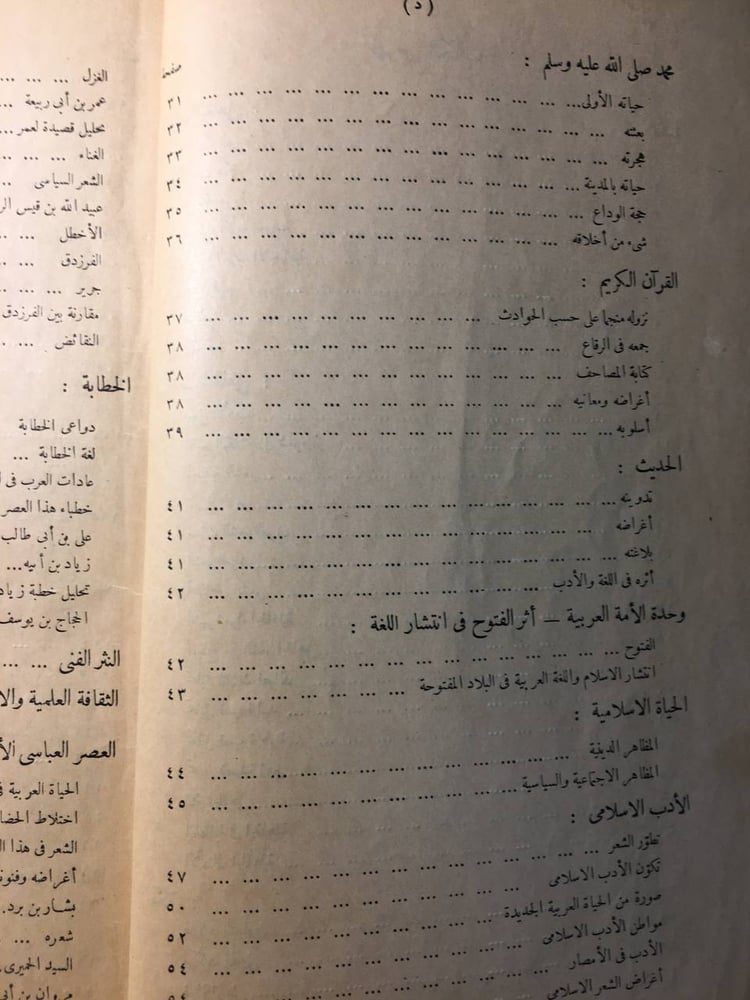 ( د )
صفحة
محمد صلى الله عليه وسلم :
حياته الأولى ... ٣١
بعثته ... ٣٢
هجرته ... ٣٣
حياته بالمدينة ... ٣٤
حجة الوداع ... ٣٥
شىء من أخلاقه ... ٣٦
القرآن الكريم :
نزوله منجما على حسب الحوادث ... ٣٧
جمعه فى الرقاع ... ٣٨
كتابة المصاحف ... ٣٨
أغراضه ومعانيه ... ٣٨
أسلوبه ... ٣٩
الحديث :
تدوينه ... ٤١
أغراضه ... ٤١
بلاغته ... ٤١
أثره فى اللغة والأدب ... ٤٢
وحدة الأمة العربية — أثر الفتوح فى انتشار اللغة :
الفتوح ... ٤٢
انتشار الاسلام واللغة العربية فى البلاد المفتوحة ... ٤٣
الحياة الاسلامية :
المظاهر الدينية ... ٤٤
المظاهر الاجتماعية والسياسية ... ٤٥
الأدب الاسلامى :
تطور الشعر ... ٤٧
تكون الأدب الاسلامى ... ٥٠
صورة من الحياة العربية الجديدة ... ٥٢
مواطن الأدب الاسلامى ... ٥٤
الأدب فى الأمصار ...
أغراض الشعر الاسلامى
الغزل ...
عمر بن أبى ربيعة ...
تحليل قصيدة لعمر ...
الغناء ...
الشعر السياسى ...
عبيد الله بن قيس
الأخطل ...
الفرزدق ...
جرير ...
مقارنة بين الفرزدق
النقائض ...
الخطابة :
دواعى الخطابة
لغة الخطابة ...
عادات العرب فى
خطباء هذا العصر
على بن أبى طالب
زياد بن أبيه ...
تحليل خطبة زياد
الحجاج بن يوسف
النثر الفنى ...
الثقافة العلمية
العصر العباسى
الحياة العربية
اختلاط
الشعر فى هذا
أغراضه وفنونه
بشار بن برد.
شعره ...
السيد الحميرى
مروان بن أبى